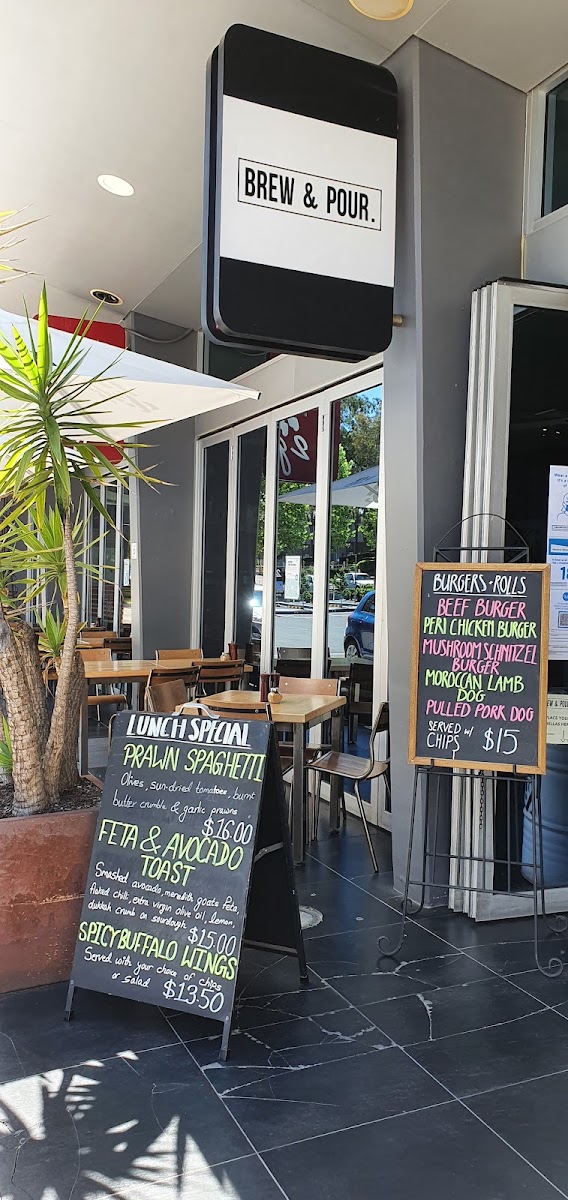 BREW & POUR.
BURGERS + ROLLS
BEEF BURGER
PERI CHICKEN BURGER
MUSHROOM SCHNITZEL
BURGER
MOROCCAN LAMB
DOG
PULLED PORK DOG
SERVED w/
CHIPS $15
LUNCH SPECIAL
PRAWN SPAGHETTI
Olives, sun-dried tomatoes, burnt
butter crumble & garlic prawns
$16.00
FETA & AVOCADO
TOAST
Smashed avocado, meredith goats feta,
flaked chilli, extra virgin olive oil, lemon,
dukkah crumb on sourdough $15.00
SPICY BUFFALO WINGS
Served with your choice of chips
or salad $13.50